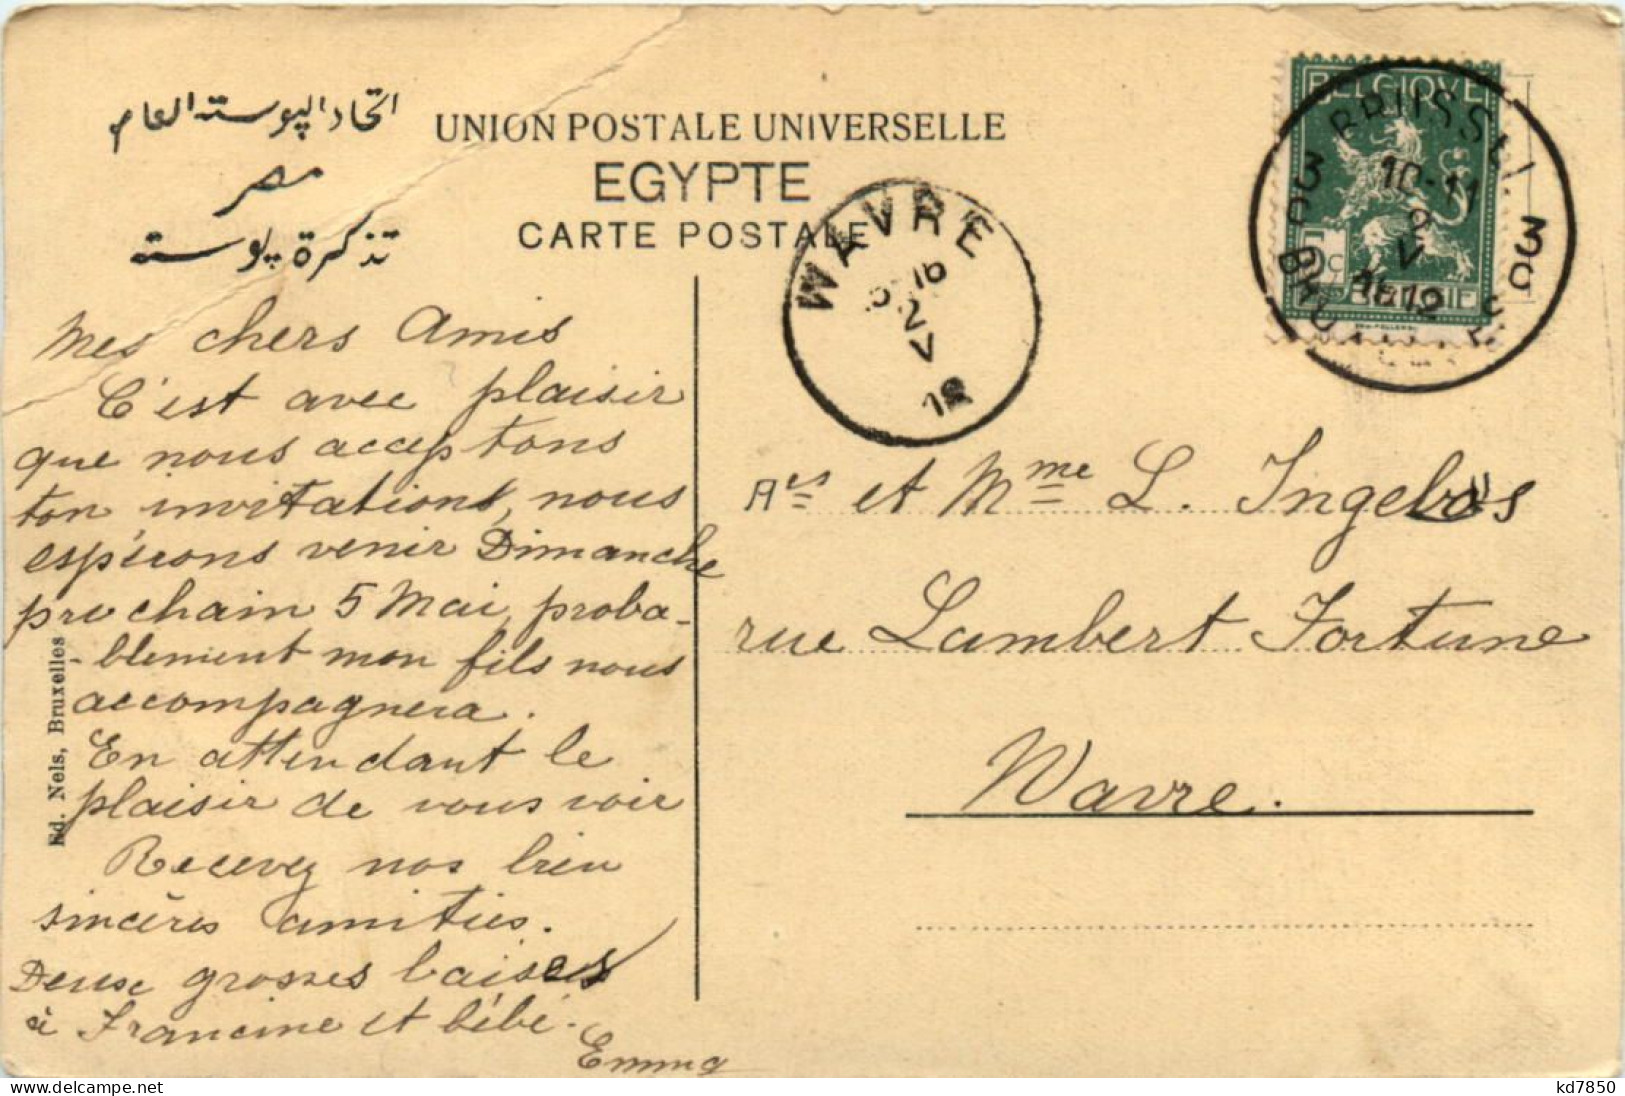 اتحاد البوسته العام
مصر
تذكرة بوسته
UNION POSTALE UNIVERSELLE
EGYPTE
CARTE POSTALE
BELGIQUE
5c
10-11
V
1912
3C
WAVRE
16
2
V
Mes chers Amis
C'est avec plaisir
que nous acceptons
ton invitation, nous
espérons venir Dimanche
prochain 5 Mai, proba-
-blement mon fils nous
accompagnera.
En attendant le
plaisir de vous voir
Recevez nos bien
sincères amitiés.
Deux grosses baises
à Francine et bébé.
Emma
Ed. Nels, Bruxelles
et Mme L. Ingelbos
rue Lambert Fortune
Wavre.
kd7850